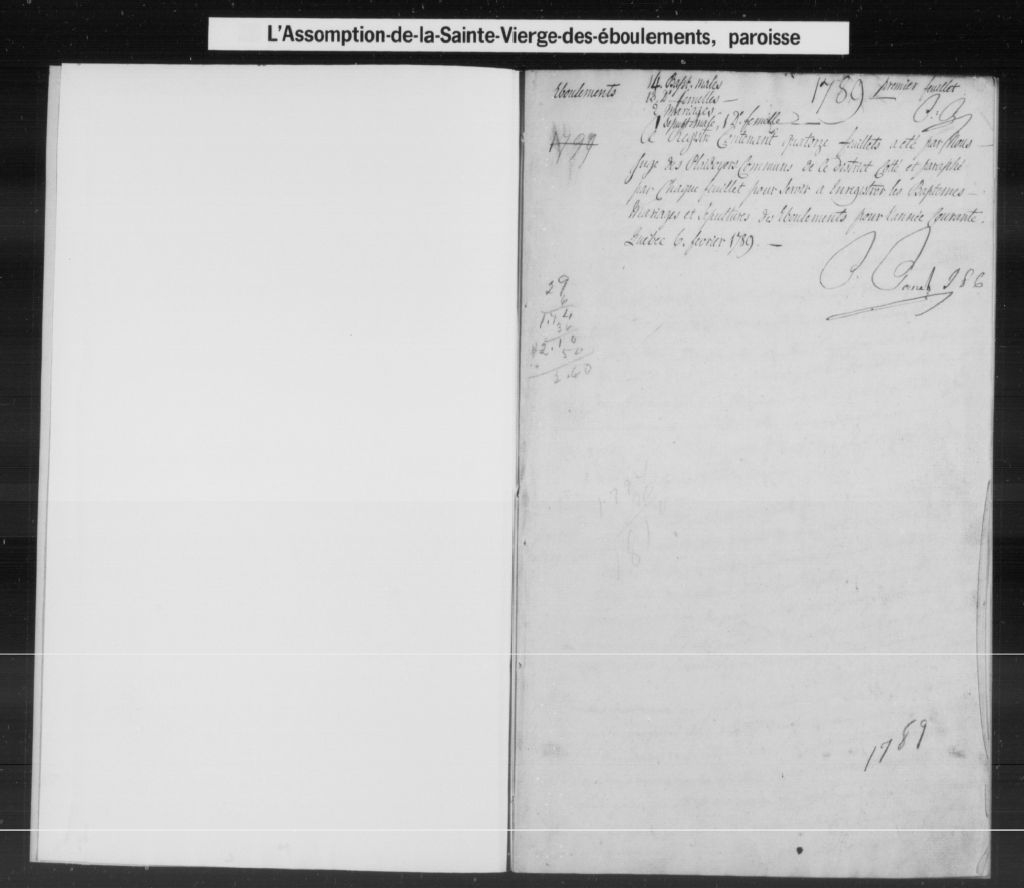 L'Assomption-de-la-Sainte-Vierge-des-éboulements, paroisse
Eboulements
14 Bapt. males
13 Do femelles —
2 mariages
1 sepult. male, 1 Do femelle 2 —
1789
premier feuillet
P: P
1799
Ce Registre Contenant quatorze feuillets a eté par Nous
Juge des Plaidoyers Communs de Ce District Coté et paraphé
par Chaque feuillet pour Servir a Enregistrer les Baptemes —
Mariages et Sepultures des Eboulements pour l'année Courante.
Quebec 6. fevrier 1789. —
P. Panet
29
6
1.74
30
2.10
50
2.60
1789